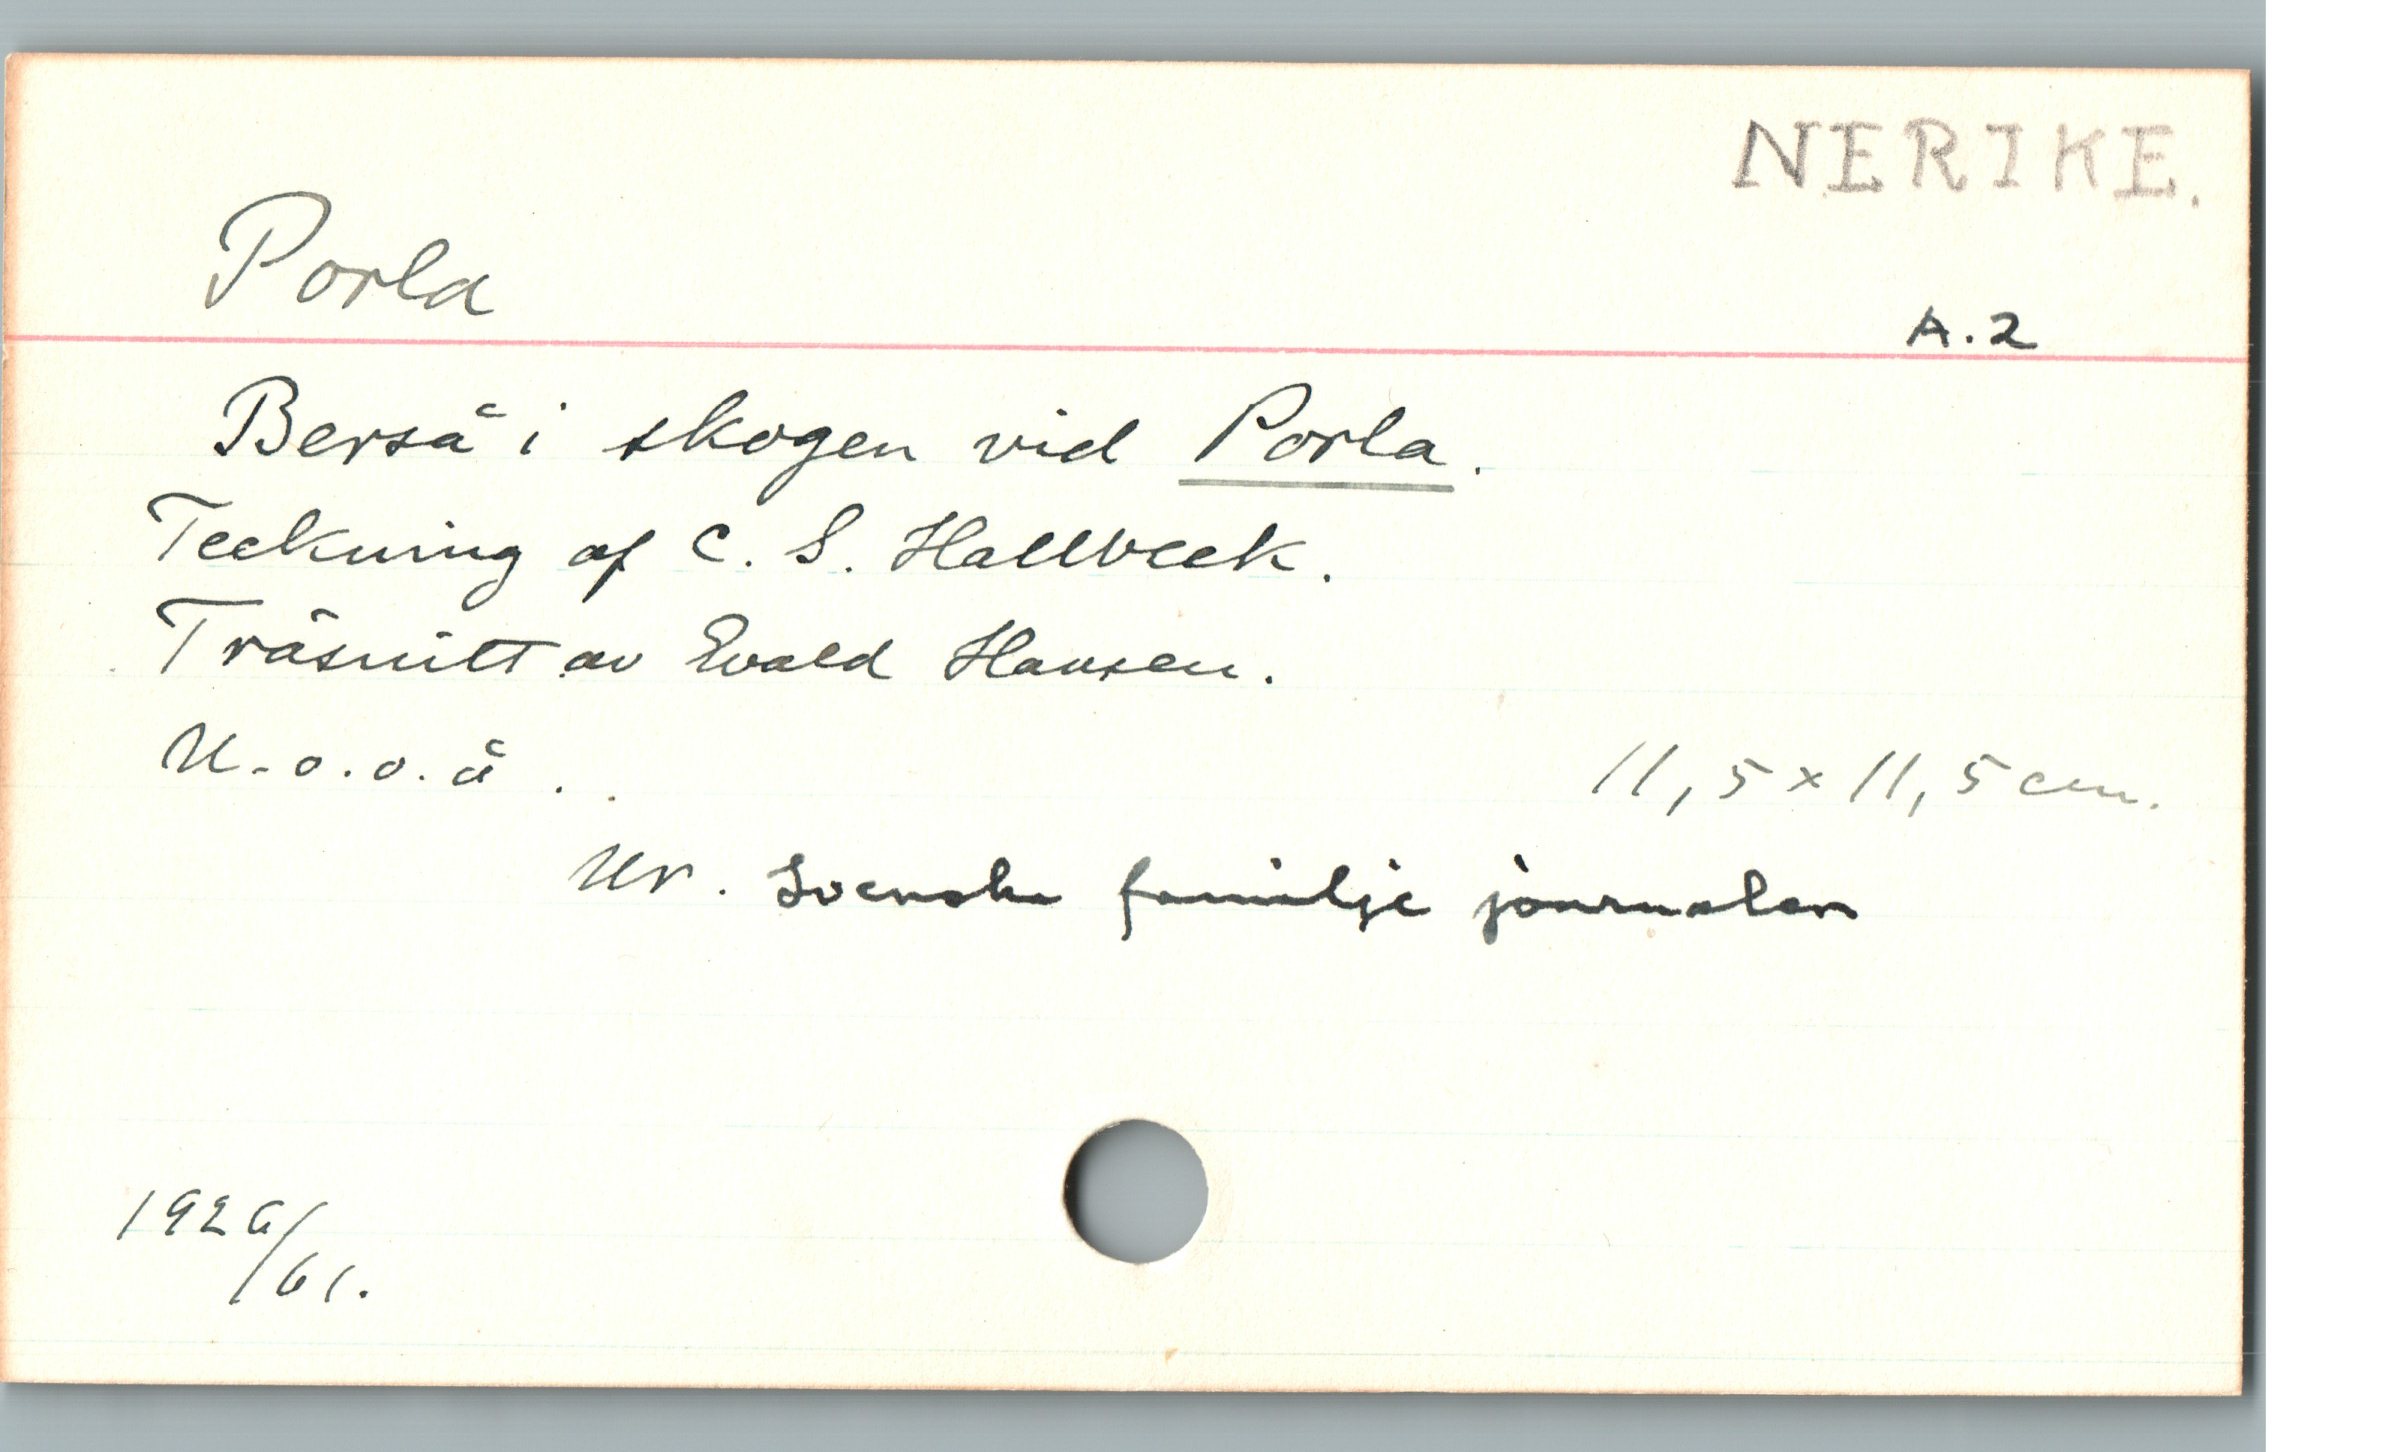 NERIKE.
Porla
A.2
Berså i skogen vid Porla.
Teckning af C. S. Hallbeck.
Träsnitt av Evald Hansen.
U.o.o.å.
11,5 x 11,5 cm.
Ur. Svenska familje journalen
1926/61.